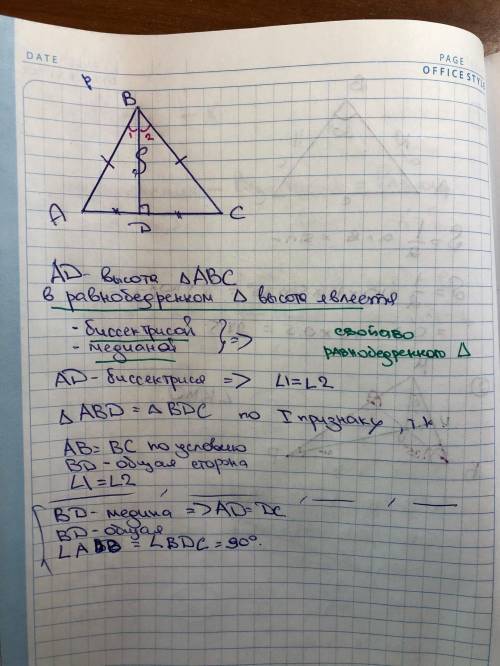 DATE
PAGE
OFFICE STYLE
P
B
1 2
A
D
C
AD - высота △ABC
в равнобедренном △ высота является
- биссектрисой
- медианой
} =>
свойство
равнобедренного △
AD - биссектриса => ∠1=∠2
△ABD = △BDC по I признаку, т.к
AB = BC по условию
BD - общая сторона
∠1 = ∠2
BD - медина => AD = DC
BD - общая
∠ADB = ∠BDC = 90°.